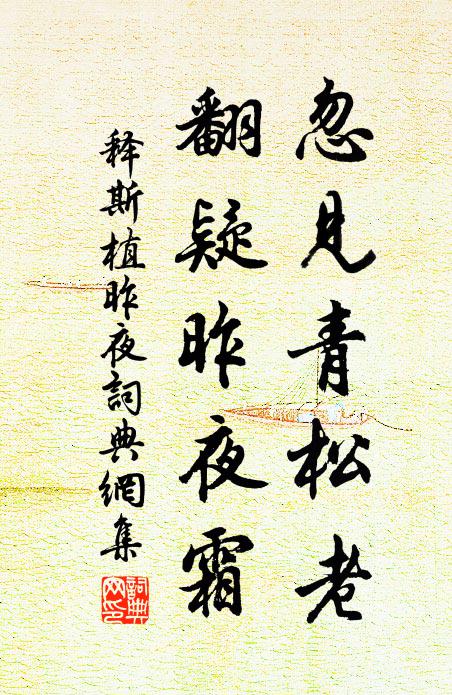 忽见青松老
翻疑昨夜霜
释斯植昨夜詞典網集
詞典网印